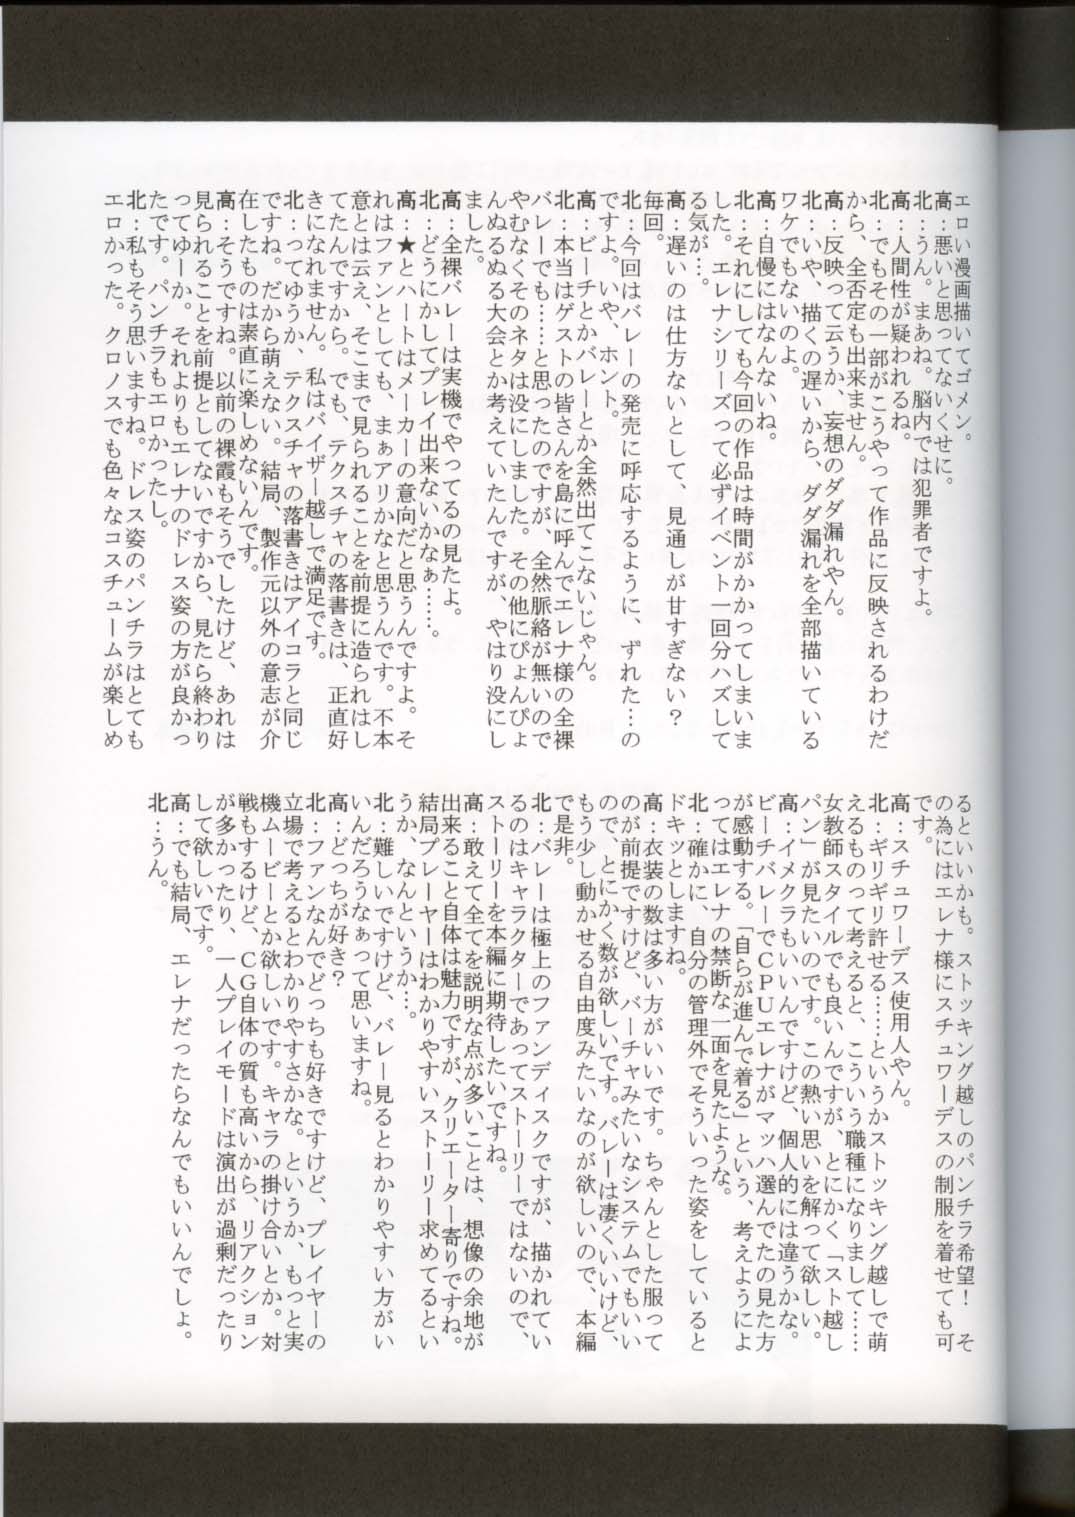 エロい漫画描いてゴメン。
高：悪いと思ってないくせに。
北：うん。まあね。脳内では犯罪者ですよ。
高：人間性が疑われるね。
北：でもその一部がこうやって作品に反映されるわけだ
から、全否定も出来ません。
高：反映って云うか、妄想のダダ漏れやん。
北：いや、描くの遅いから、ダダ漏れを全部描いている
ワケでもないのよ。
高：自慢にはなんないね。
北：それにしても今回の作品は時間がかかってしまいま
した。エレナシリーズって必ずイベント一回分ハズして
る気が…。
高：遅いのは仕方ないとして、見通しが甘すぎない？
毎回。
北：今回はバレーの発売に呼応するように、ずれた…の
ですよ。いや、ホント。
高：ビーチとかバレーとか全然出てこないじゃん。
北：本当はゲストの皆さんを島に呼んでエレナ様の全裸
バレーでも……と思ったのですが、全然脈絡が無いので
やむなくそのネタは没にしました。その他にぴょんぴょ
んぬるぬる大会とか考えていたんですが、やはり没にし
ました。
高：全裸バレーは実機でやってるの見たよ。
北：どうにかしてプレイ出来ないかなぁ……。
高：★とハートはメーカーの意向だと思うんですよ。そ
れはファンとしても、まぁアリかなと思うんです。不本
意とは云え、そこまで見られることを前提に造られはし
てたんですから。でも、テクスチャの落書きは、正直好
きになれません。私はバイザー越しで満足です。
北：ってゆうか、テクスチャの落書きはアイコラと同じ
ですね。だから萌えない。結局、製作元以外の意志が介
在したものは素直に楽しめないんです。
高：そうですね。以前の裸霞もそうでしたけど、あれは
見られることを前提としてないですから、見たら終わり
ってゆーか。それよりもエレナのドレス姿の方が良かっ
たです。パンチラもエロかったし。
北：私もそう思いますね。ドレス姿のパンチラはとても
エロかった。クロノスでも色々なコスチュームが楽しめ
るといいかも。ストッキング越しのパンチラ希望！　そ
の為にはエレナ様にスチュワーデスの制服を着せても可
です。
高：スチュワーデス使用人やん。
北：ギリギリ許せる……というかストッキング越しで萌
えるものって考えると、こういう職種になりまして……
女教師スタイルでも良いんですが、とにかく「スト越し
パン」が見たいのです。この熱い思いを解って欲しい。
高：イメクラもいいんですけど、個人的には違うかな。
ビーチバレーでＣＰＵエレナがマッハ選んでたの見た方
が感動する。「自らが進んで着る」という、考えようによ
ってはエレナの禁断な一面を見たような。
北：確かに、自分の管理外でそういった姿をしていると
ドキッとしますね。
高：衣装の数は多い方がいいです。ちゃんとした服って
のが前提ですけど、バーチャみたいなシステムでもいい
ので、とにかく数が欲しいです。バレーは凄くいいけど、
もう少し動かせる自由度みたいなのが欲しいので、本編
で是非。
北：バレーは極上のファンディスクですが、描かれてい
るのはキャラクターであってストーリーではないので、
ストーリーを本編に期待したいですね。
高：敢えて全てを説明な点が多いことは、想像の余地が
出来ること自体は魅力ですが、クリエーター寄りですね。
結局プレーヤーはわかりやすいストーリー求めてるとい
うか、なんというか…。
北：難しいですけど、バレー見るとわかりやすい方がい
いんだろうなぁって思いますね。
高：どっちが好き？
北：ファンなんでどっちも好きですけど、プレイヤーの
立場で考えるとわかりやすさかな。というか、もっと実
機ムービーとか欲しいです。キャラの掛け合いとか。対
戦もするけど、ＣＧ自体の質も高いから、リアクション
が多かったり、一人プレイモードは演出が過剰だったり
して欲しいです。
高：でも結局、エレナだったらなんでもいいんでしょ。
北：うん。